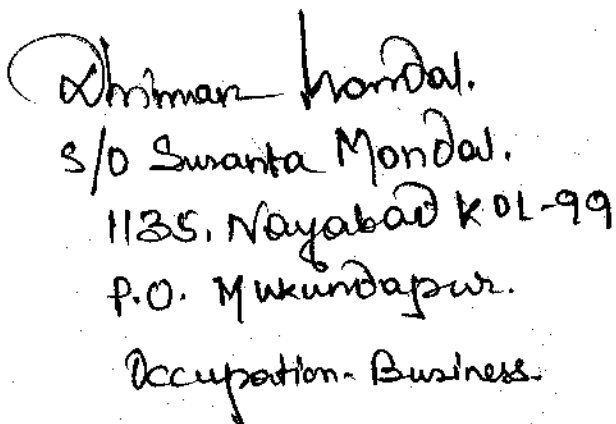 Dhiman Mondal.
S/O Susanta Mondal.
1135, Nayabad KOL-99
P.O. Mukundapur.
Occupation- Business.